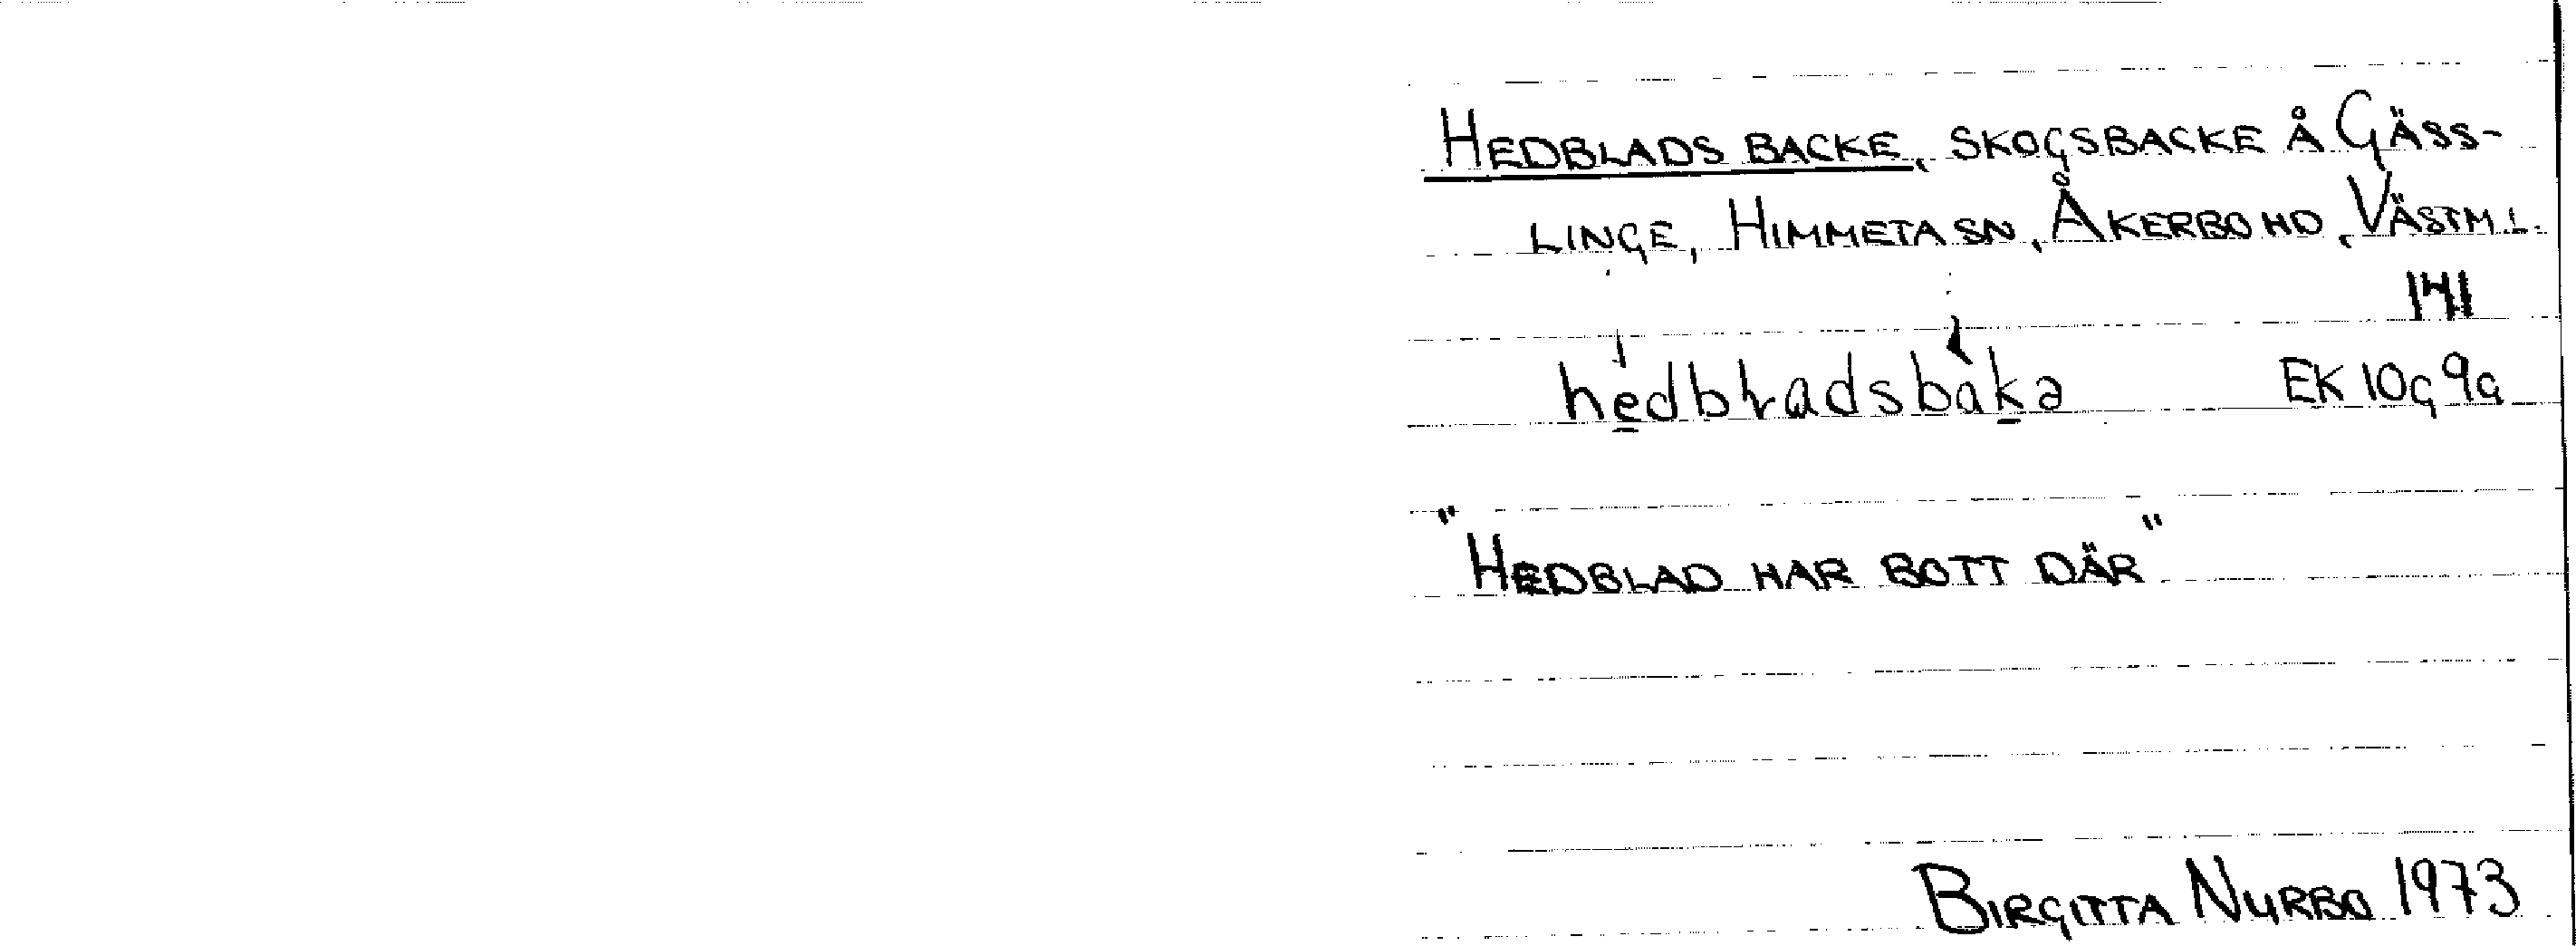 HEDBLADS BACKE, SKOGSBACKE Å GÄSS-
LINGE, HIMMETA SN, ÅKERBO HD, VÄSTML.
141
hedbladsbakə EK 10g 9a
"HEDBLAD HAR BOTT DÄR"
BIRGITTA NURBO 1973